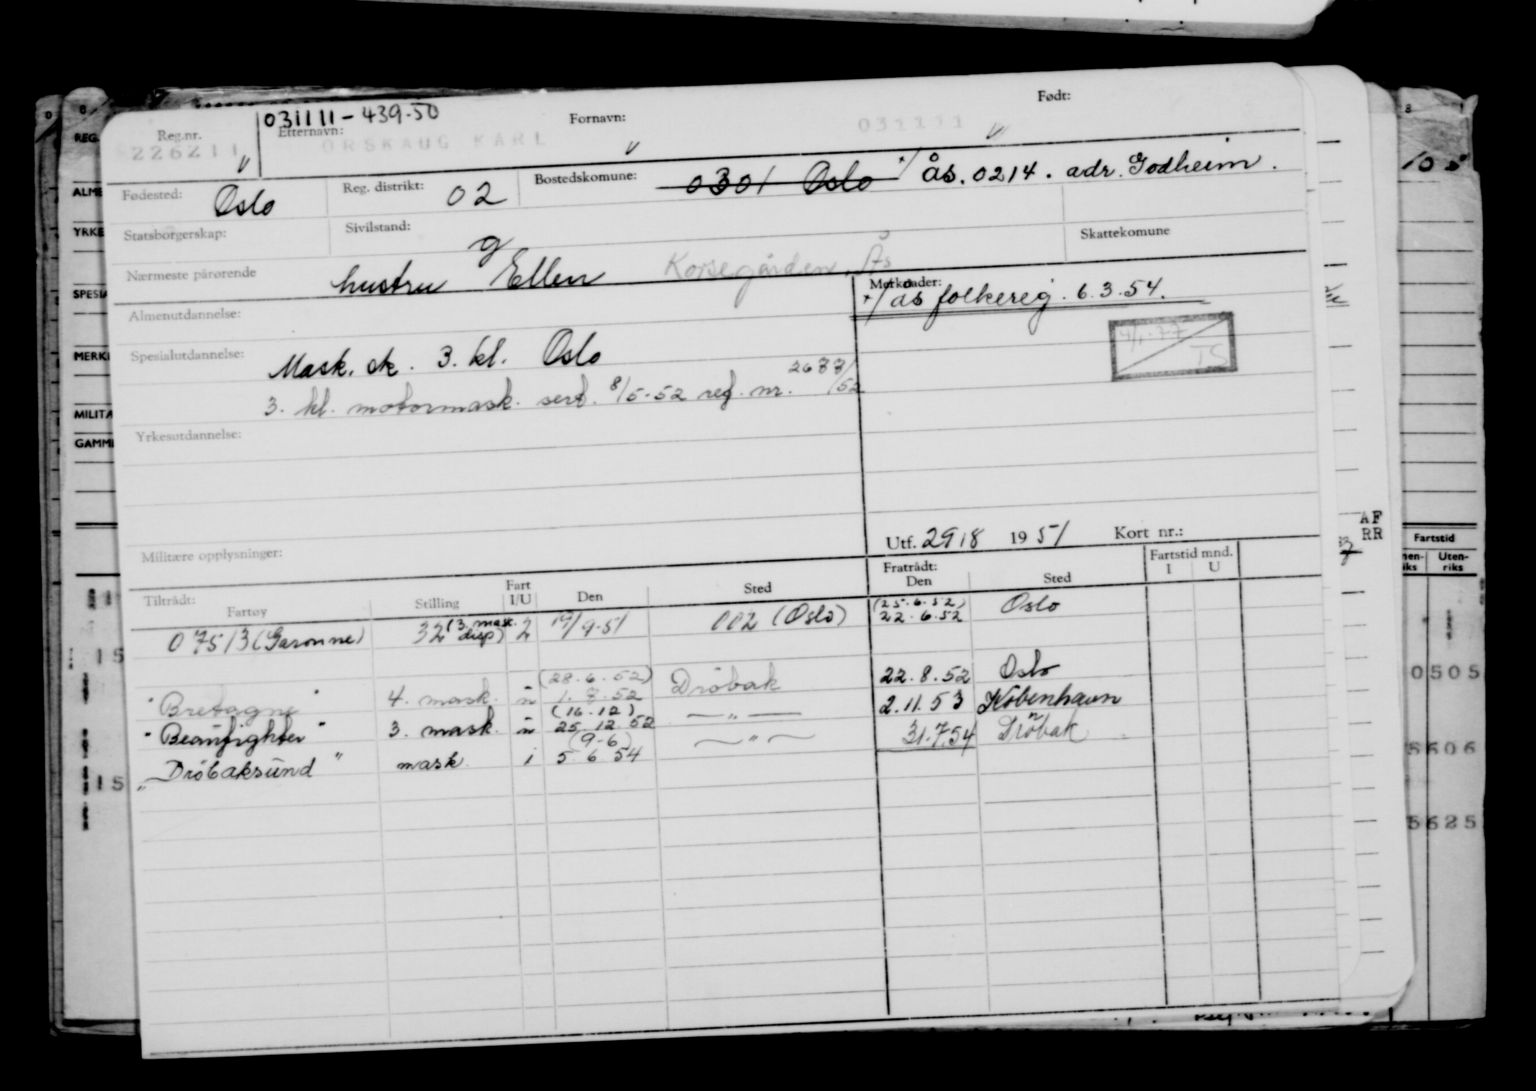 031111-439.50
Reg.nr. Etternavn: Fornavn: Født:
226211 ORSKAUG KARL 031111
Fødested: Oslo Reg. distrikt: 02 Bostedskomune: 0301 Oslo +/ Ås. 0214. adr. Godheim.
Statsborgerskap: Sivilstand: g Skattekomune
Nærmeste pårørende hustru Ellen Korsegården, Ås
Merknader:
+/ Ås folkereg. 6.3.54.
Almenutdannelse:
Spesialutdannelse: Mask. sk. 3. kl. Oslo
3. kl. motormask. sert. 8/5-52 reg. nr. /52
TS
Yrkesutdannelse:
Militære opplysninger:
Utf. 2918 1951 Kort nr.:
Tiltrådt: Fratrådt: Fartstid mnd.
Fartøy Stilling Fart I/U Den Sted Den Sted I U
07513 (Garonne) 32 (3. mask. disp) 2 19/9.51 002 (Oslo) (25.6.52) 22.6.52 Oslo
"Bretagne" 4. mask. u (28.6.52) 1.8.52 Dröbak 22.8.52 Oslo
"Beaufighter" 3. mask. u (16.12) 25.12.52 — " — 2.11.53 Köbenhavn
"Dröbaksund" mask. i (9-6) 5.6.54 — " — 31.7.54 Dröbak
REG.
ALME
YRKE
SPESIA
MERKI
MILITÆ
GAMME
AF
RR
Fartstid
Uten-
riks
15
15
0505
5606
5625